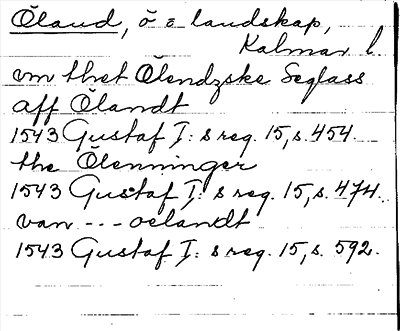 Öland, ö = landskap,
Kalmar l.
vm thet Ölendzske Seglass
aff Ölandt
1543 Gustaf I: s reg. 15, s. 454.
the Ölenninger
1543 Gustaf I: s reg. 15, s. 474.
van --- oelandt
1543 Gustaf I: s reg. 15, s. 592.